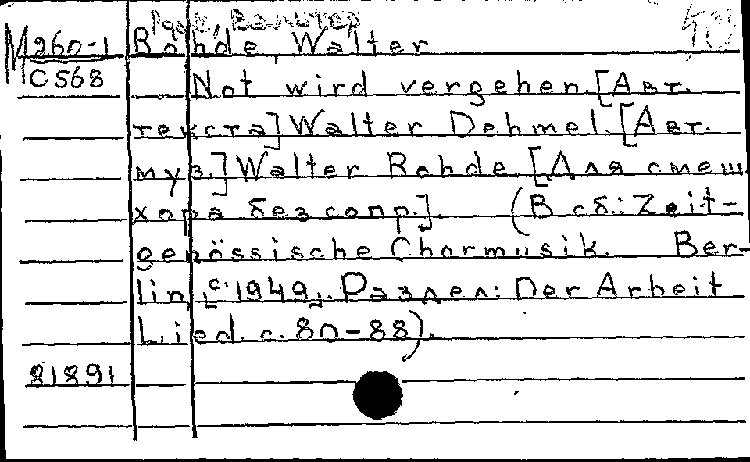 М260-1 Rohde, Walter
C568 Not wird vergehen. [Авт.
текста] Walter Dehmel. [Авт.
муз.] Walter Rohde. [Для смеш.
хора без сопр.]. (В сб.: Zeit-
genössische Chormusik. Ber-
lin, [с. 1949]. Раздел: Der Arbeit
Lied. с. 80-88).
81891